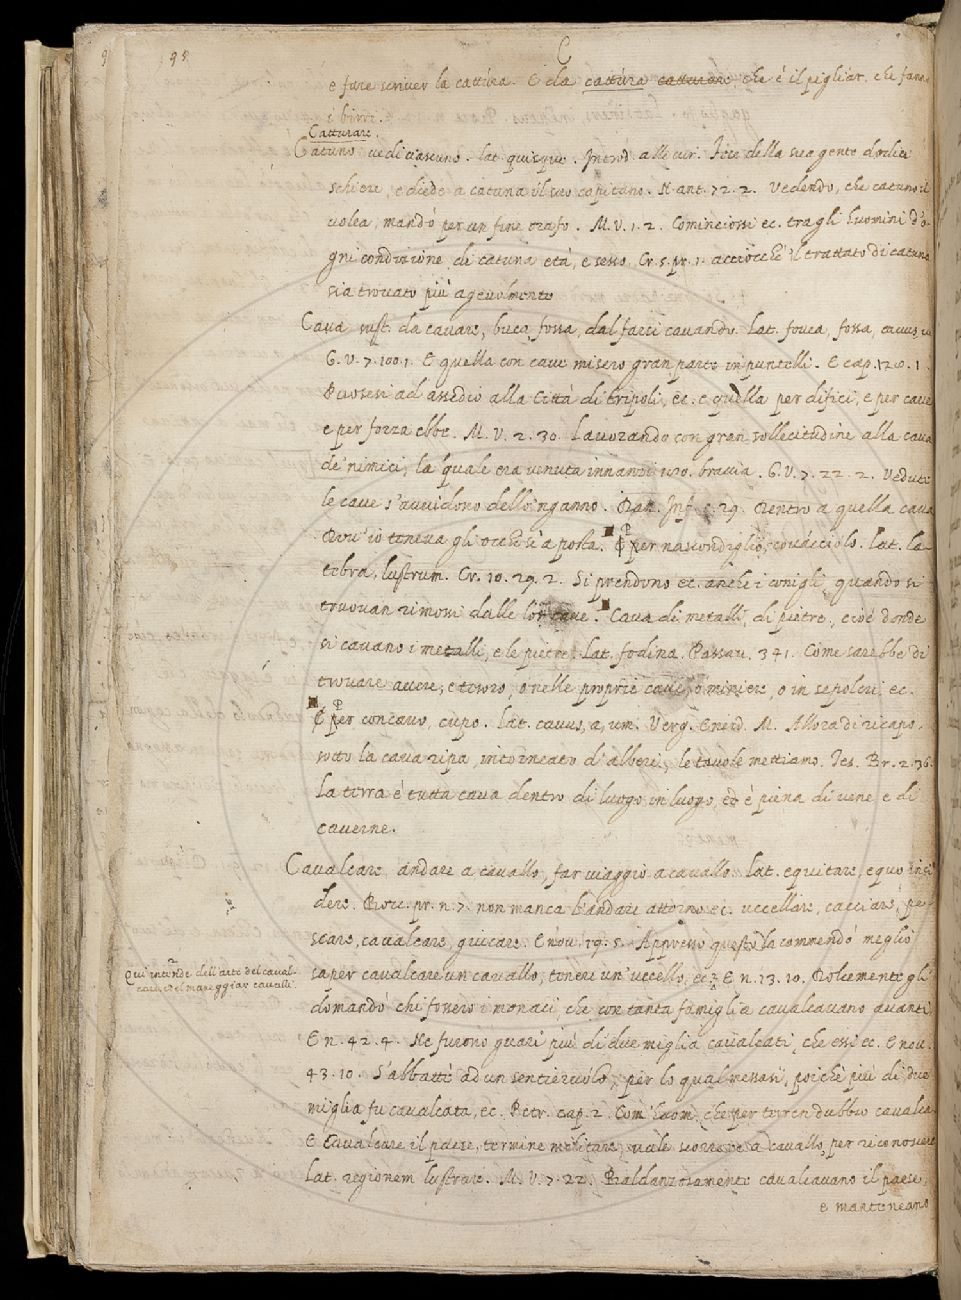 95
C
e fare scriver la cattura. E da cattura catturare, che è il pigliar, che fanno
i birri.
Catturare.
Catuno vedi ciascuno. lat. quisque. Introd. alle vir. Fece della sua gente dodici
schiere, e diede a catuna il suo capitano. N. ant. 72. 2. Vedendo, che catuno il
volea, mandò per un fine orafo. M. V. 1. 2. Cominciossi ec. tra gli huomini d'o-
gni condizione, di catuna età, e sesso. Cr. 5. pr. 1. acciocchè il trattato di catuno
sia trovato più agevolmente
Cava sust. da cavare, buca, fossa, dal farsi cavando. Lat. fovea, fossa, cavus,
G. V. 7. 100. 1. E quella con cave misero gran parte in puntelli. E cap. 120. 1.
Puosesi ad assedio alla Città di Tripoli, ec. e quella per difici, e per cave
e per forza ebbe. M. V. 2. 30. Lavorando con gran sollecitudine alla cava
de' nimici, la quale era venuta innanzi braccia. G. V. 7. 22. 2. Vedute
le cave s'avvidono dello 'nganno. Dan. Inf. c. 29. Dentro a quella cava
Dov' io teneva gli occhi sì a posta. ¶ P per nascondiglio, covacciolo. Lat. la-
tebra, lustrum. Cr. 10. 29. 2. Si prendono ec. anche i conigli, quando si
truovan rimossi dalle lor cave. Cava di metalli, di pietre, cioè donde
si cavano i metalli, e le pietre. Lat. fodina. Passav. 341. Come sarebbe di
trovare avere, e tesoro, o nelle proprie cave, o miniere, o in sepolcri ec.
¶ P per concavo, cupo. Lat. cavus, a, um. Verg. Eneid. M. Allora di ricapo,
sotto la cava ripa, intorneato d'alberi, le tavole mettiamo. Tes. Br. 2. 36.
La terra è tutta cava dentro di luogo in luogo, ed è piena di vene e di
caverne.
Cavalcare andare a cavallo, far viaggio a cavallo. lat. equitare, equo insi-
dere. Bocc. pr. n. 7. non manca l'andare attorno ec. uccellare, cacciare, pe-
scare, cavalcare, giucare. E nov. 19. 5. Appresso questo la commendò meglio
Qui intende dell'arte del caval-
care, e del maneggiar cavalli.
saper cavalcare un cavallo, tenere un uccello, ec. E n. 13. 10. Dolcemente gli
domandò chi fossero i monaci, che con tanta famiglia cavalcavano avanti
E n. 42. 4. Ne furono guari più di due miglia cavalcati, che essi ec. E nov.
43. 10. S'abbattè ad un sentieruolo, per lo qual messasi, poichè più di due
miglia fu cavalcata, ec. Petr. cap. 2. Com' huom, che per terren dubbio cavalca
E Cavalcare il paese, termine militare, vale scorrere a cavallo, per riconoscere
Lat. regionem lustrare. M. V. 7. 22. Baldanzosamente cavalcavano il paese,
e manteneano